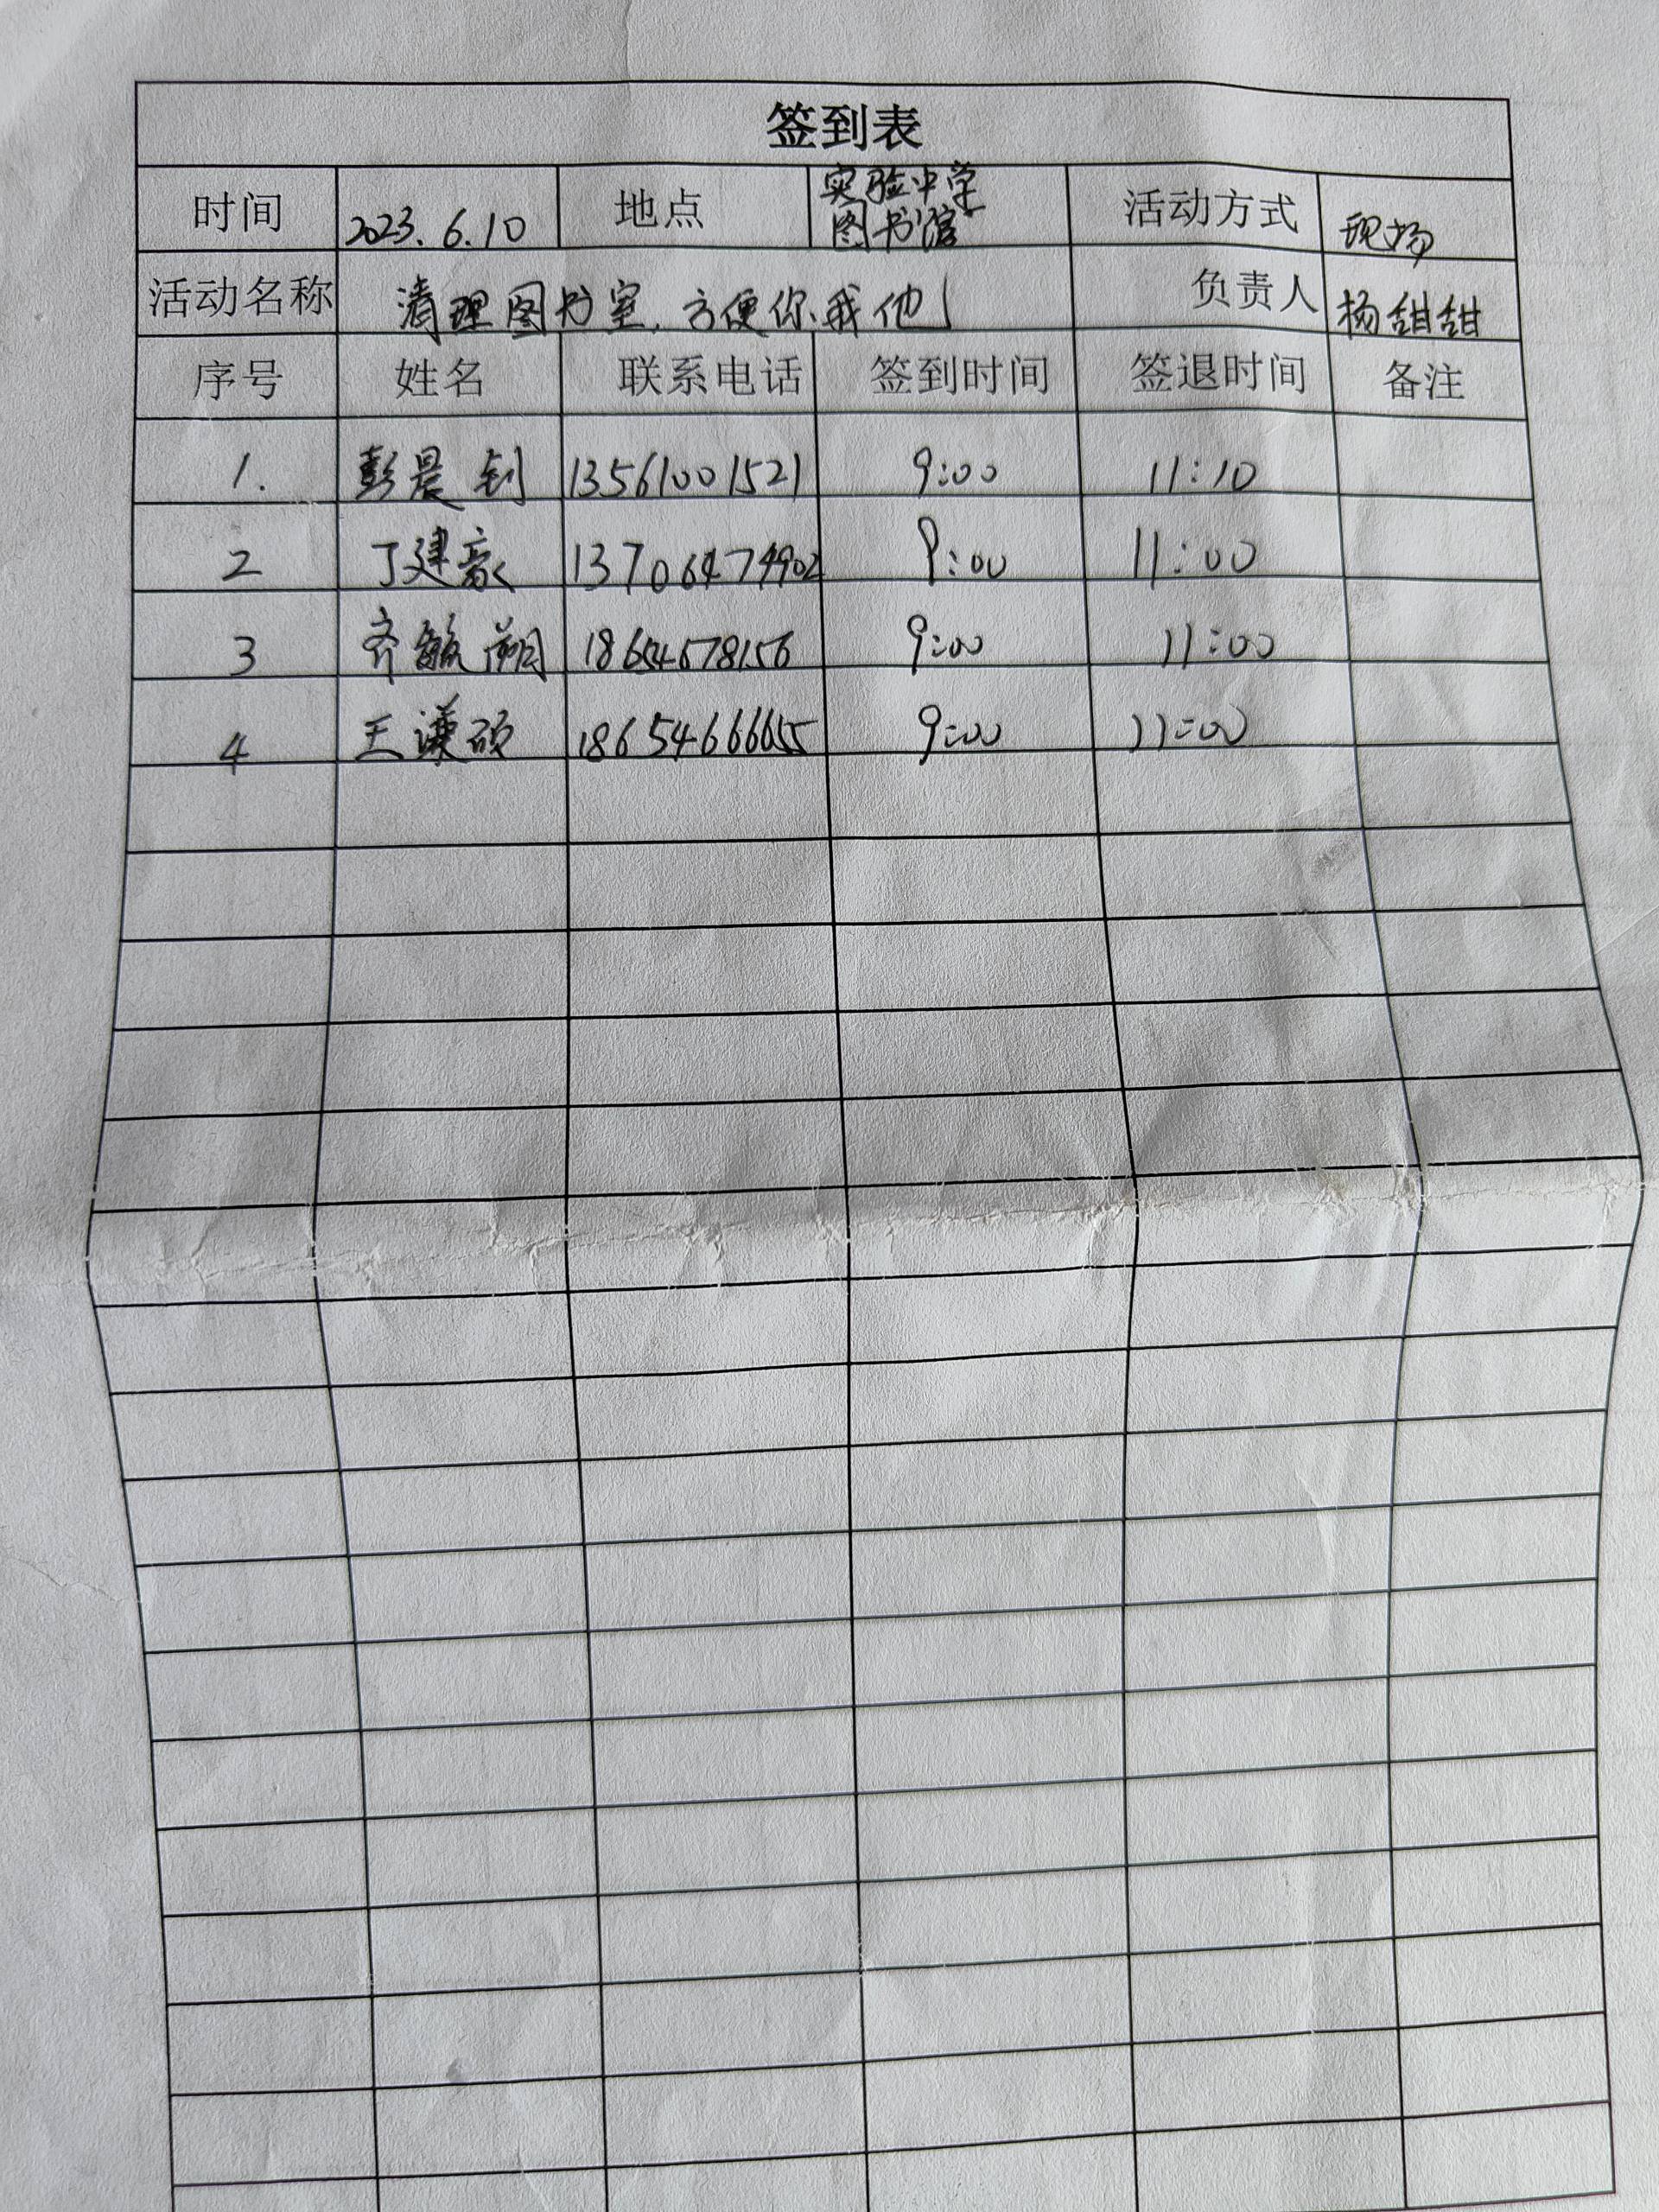 签到表
时间 2023.6.10 地点 实验中学图书馆 活动方式 现场
活动名称 清理图书室,方便你我他! 负责人 杨甜甜
序号 姓名 联系电话 签到时间 签退时间 备注
1. 彭晨钊 13561001521 9:00 11:10
2 丁建豪 13706474902 9:00 11:00
3 齐毓朔 18654678156 9:00 11:00
4 王谦硕 18654666655 9:00 11:00